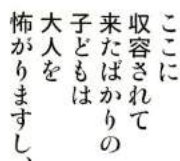 ここに
収容されて
来たばかりの
子どもは
大人を
怖がりますし、